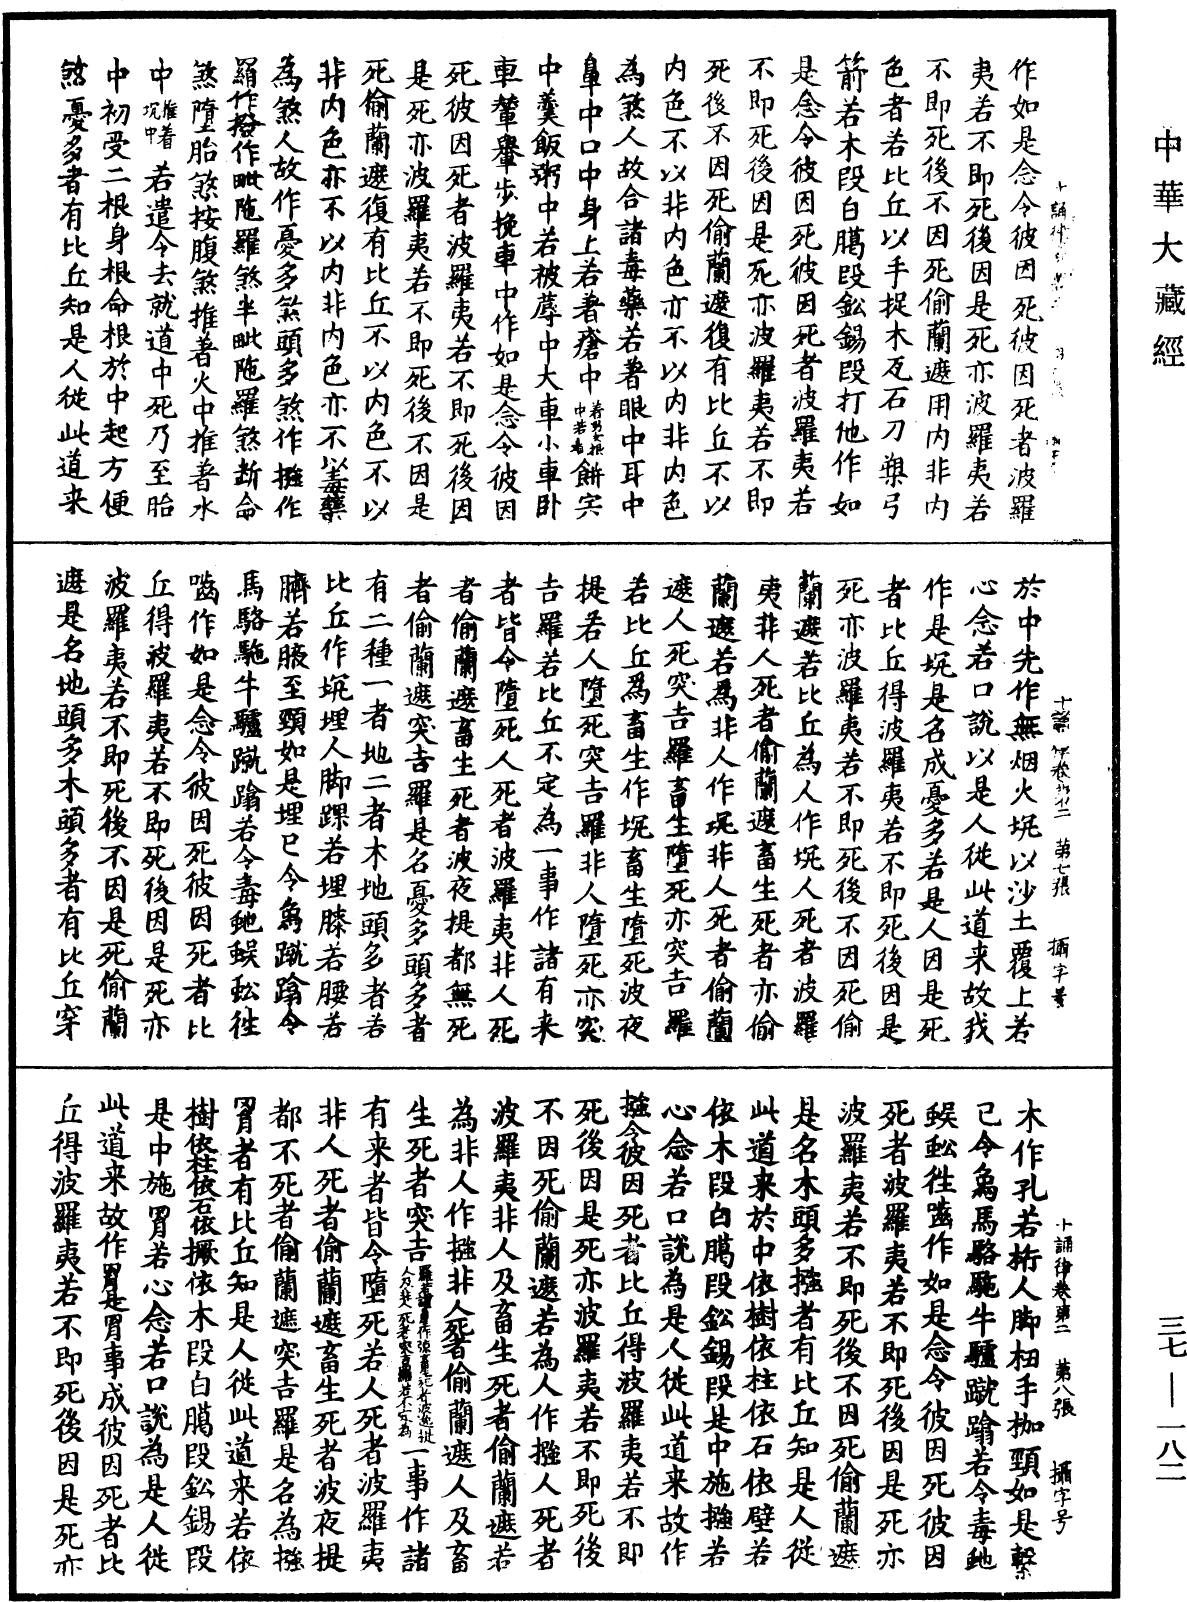 中華大藏經
三七—一八二
作如是念令彼因死彼因死者波羅
夷若不即死後因是死亦波羅夷若
不即死後不因死偷蘭遮用内非内
色者若比丘以手捉木瓦石刀槊弓
箭若木段白鑞段鈆錫段打他作如
是念令彼因死彼因死者波羅夷若
不即死後因是死亦波羅夷若不即
死後不因死偷蘭遮復有比丘不以
内色不以非内色亦不以内非内色
為煞人故合諸毒藥若著眼中耳中
鼻中口中身上若著瘡中著男女根中若著餅宍
中羹飯粥中若被蓐中大車小車卧
車輦轝步挽車中作如是念令彼因
死彼因死者波羅夷若不即死後因
是死亦波羅夷若不即死後不因是
死偷蘭遮復有比丘不以内色不以
非内色亦不以内非内色亦不以毒藥
為煞人故作憂多煞頭多煞作攦作
羂作撥作毗陁羅煞半毗陁羅煞斷命
煞墮胎煞按腹煞推著火中推著水
中推著坑中若遣令去就道中死乃至胎
中初受二根身根命根於中起方便
煞憂多者有比丘知是人從此道来
十誦律卷第二　第七張　攝字号
於中先作無烟火坑以沙土覆上若
心念若口說以是人從此道来故我
作是坑是名成憂多若是人因是死
者比丘得波羅夷若不即死後因是
死亦波羅夷若不即死後不因死偷
蘭遮若比丘為人作坑人死者波羅
夷非人死者偷蘭遮畜生死者亦偷
蘭遮若為非人作坑非人死者偷蘭
遮人死突吉羅畜生墮死亦突吉羅
若比丘為畜生作坑畜生墮死波夜
提若人墮死突吉羅非人墮死亦突
吉羅若比丘不定為一事作諸有来
者皆令墮死人死者波羅夷非人死
者偷蘭遮畜生死者波夜提都無死
者偷蘭遮突吉羅是名憂多頭多者
有二種一者地二者木地頭多者若
比丘作坑埋人脚踝若埋膝若腰若
臍若腋至頸如是埋已令象蹴蹹令
馬駱駞牛驢蹴蹹若令毒虵蜈蚣徃
嚙作如是念令彼因死彼因死者比
丘得波羅夷若不即死後因是死亦
波羅夷若不即死後不因是死偷蘭
遮是名地頭多木頭多者有比丘穿
十誦律卷第二　第八張　攝字号
木作孔若桁人脚杻手枷頸如是繫
已令象馬駱駞牛驢蹴蹹若令毒虵
蜈蚣徃嚙作如是念令彼因死彼因
死者波羅夷若不即死後因是死亦
波羅夷若不即死後不因死偷蘭遮
是名木頭多攦者有比丘知是人從
此道来於中依樹依柱依石依壁若
依木段白鑞段鈆錫段是中施攦若
心念若口說為是人從此道来故作
攦令彼因死者比丘得波羅夷若不即
死後因是死亦波羅夷若不即死後
不因死偷蘭遮若為人作攦人死者
波羅夷非人及畜生死者偷蘭遮若
為非人作攦非人死者偷蘭遮人及畜
生死者突吉羅若為畜生作攦畜生死者波逸提人及非人死者突吉羅若不定為一事作諸
有来者皆令墮死若人死者波羅夷
非人死者偷蘭遮畜生死者波夜提
都不死者偷蘭遮突吉羅是名為攦
罥者有比丘知是人從此道来若依
樹依柱依石依橛依木段白鑞段鈆錫段
是中施罥若心念若口說為是人從
此道来故作罥是罥事成彼因死者比
丘得波羅夷若不即死後因是死亦